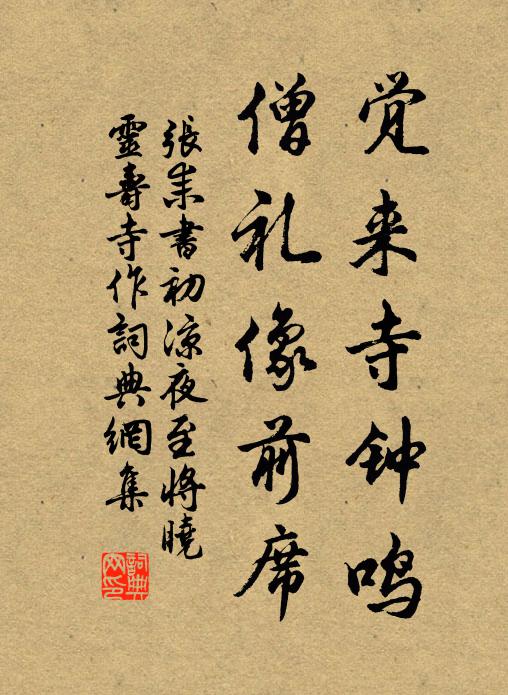 觉来寺钟鸣
僧礼像前席
張耒書初涼夜至將曉
靈壽寺作詞典網集
詞典网印